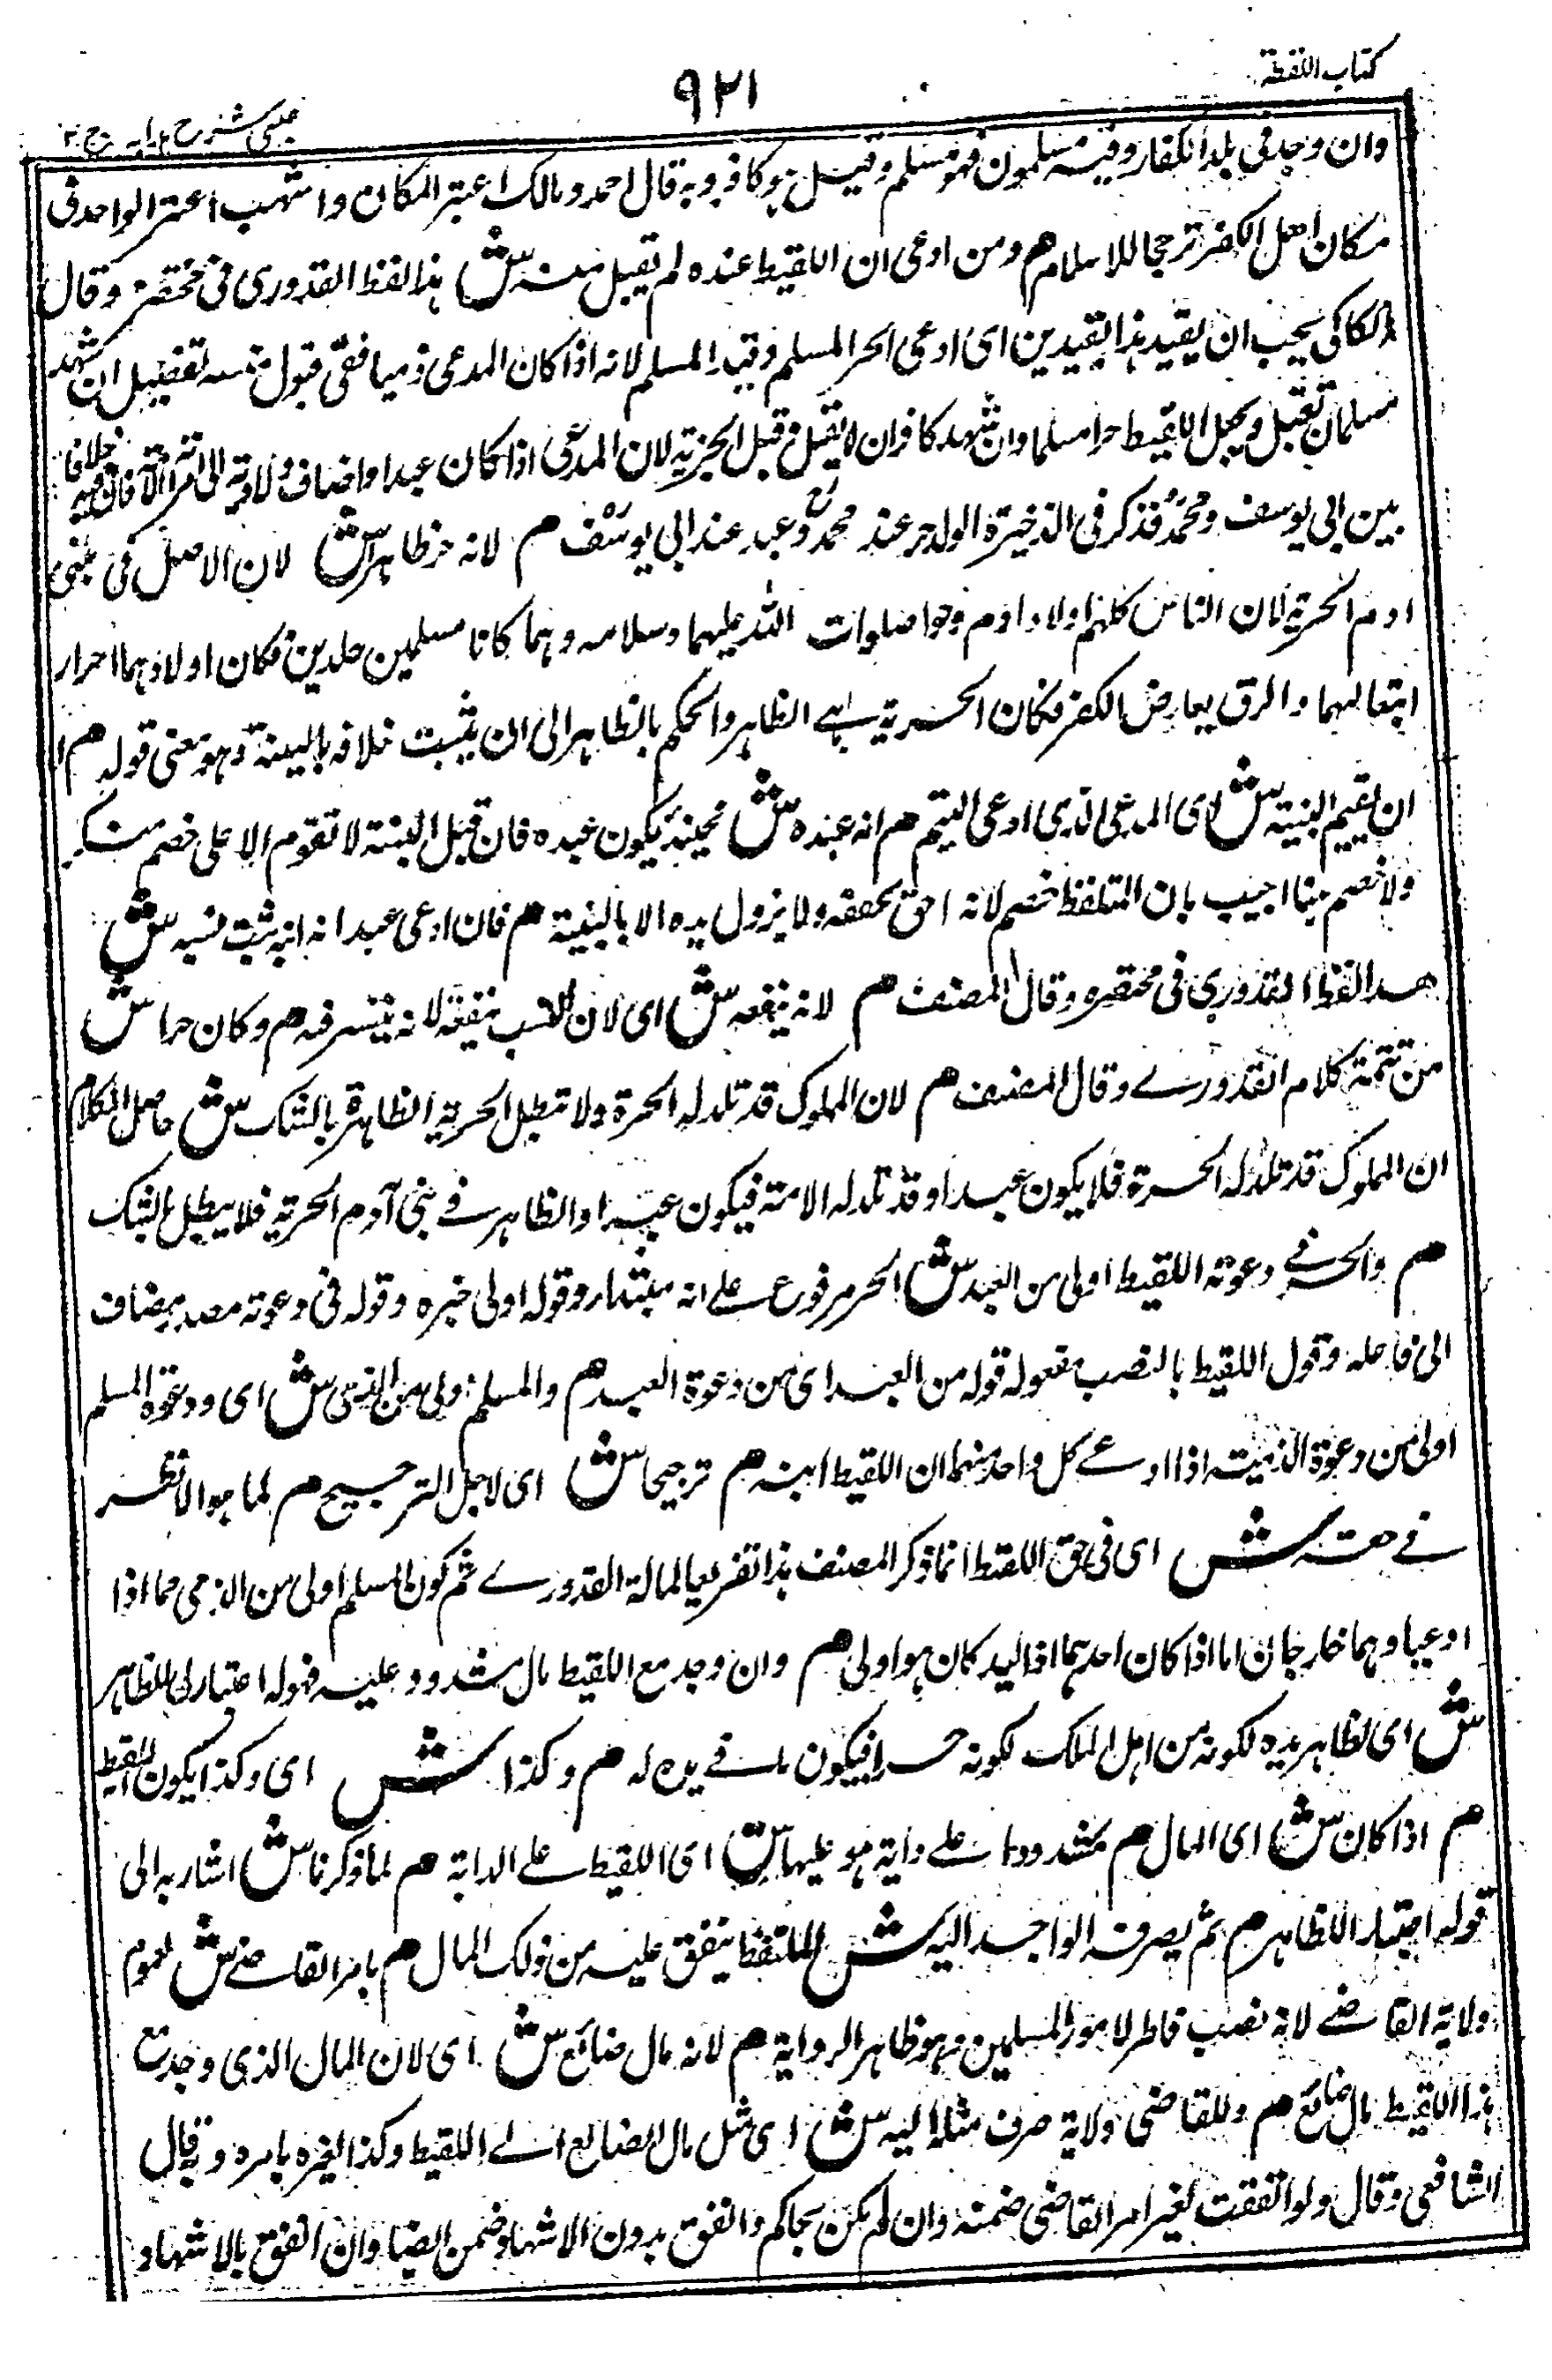 كتاب اللقطة
٩٢١
عينى شرح هدايه ج ٢
وان وجد فى بلد الكفار وفيه مسلمون فهو مسلم وقيل هو كافر وبه قال احمد ومالك اعتبر المكان واشهب اعتبر الواحد فى
مكان اهل الكفر ترجيحا للاسلام هم ومن ادعى ان اللقيط عنده لم تقبل منه ش هذا لفظ القدورى فى مختصره وقال
الكاكى يجب ان يقيد هذا بقيدين اى ادعى الحر المسلم وقيد المسلم لانه اذا كان المدعى ذميا ففى قبول منه تفصيل ان شهد
مسلمان تقبل ويجعل اللقيط حرا مسلما وان شهد كافران لا يقبل قبل الجزية لان المدعى اذا كان عبدا واضاف ولادته الى امرأته فان فيه خلافا
بين ابى يوسف ومحمد فذكر فى الذخيرة الولد حر عند محمد رح وعبد عند ابى يوسف م لانه حر ظاهرا ش لان الاصل فى بنى
ادم الحرية لان الناس كلهم اولاد ادم وحوا صلوات الله عليهما وسلامه وهما كانا مسلمين حلدين فكان اولادهما احرار
اتبعا لهما والرق يعارض الكفر فكان الحرية هى الظاهر والحكم بالظاهر الى ان يثبت خلافه بالبينة وهو معنى قوله م الا
ان يقيم البينة ش اى المدعى الذى ادعى اليتيم م انه عبده ش فحينئذ يكون عبده فان قيل البينة لا تقوم الا على خصم منكر
ولا خصم هنا اجيب بان الملتقط خصم لانه احق بحفظه ولا يزول يده الا بالبينة م فان ادعى عبد انه ابنه ثبت نسبه ش
هذا لفظ القدورى فى مختصره وقال المصنف م لانه ينفعه ش اى لان النسب ينفعه لانه يتشرف به م وكان حرا ش
من تتمة كلام القدورى وقال المصنف م لان المملوك قد تلد له الحرة ولا تبطل الحرية الظاهرة بالشك ش حاصل الكلام
ان المملوك قد تلد له الحرة فلا يكون عبدا وقد تلد له الامة فيكون عبدا والظاهر فى بنى آدم الحرية فلا يبطل بالشك
م والحر فى دعوته اللقيط اولى من العبد ش الحر مرفوع على انه مبتدا وقوله اولى خبره وقوله فى دعوته مصدر مضاف
الى فاعله وقول اللقيط بالنصب مفعوله قوله من العبد اى من دعوة العبد م والمسلم اولى من الذمى ش اى ودعوة المسلم
اولى من دعوة الذمية اذا ادعى كل واحد منهما ان اللقيط ابنه م ترجيحا ش اى لاجل الترجيح م لما هو الانظر
فى حقه ش اى فى حق اللقيط انما ذكر المصنف هذا تفريعا لمالة القدورى ثم كون المسلم اولى من الذمى مما اذا
ادعيا وهما خارجان اما اذا كان احدهما اذا اليد كان هو اولى م وان وجد مع اللقيط مال مشدود عليه فهو له اعتبار للظاهر
ش اى لظاهر يده لكونه من اهل الملك لكونه حرا فيكون ما فى يده له م وكذا ش اى وكذا يكون للقيط
م اذا كان ش اى المال م مشدودا على دابة هو عليها ش اى اللقيط على الدابة م لما ذكرنا ش اشار به الى
قوله اعتبار اللظاهر م ثم يصرفه الواجد اليه ش الملتقط ينفق عليه من ذلك المال م بامر القاضى ش لعموم
ولاية القاضى لانه نصب ناظر لامور المسلمين هو ظاهر الرواية م لانه مال ضائع ش اى لان المال الذى وجد مع
هذا اللقيط مال ضائع م وللقاضى ولاية صرف مثله اليه ش اى مثل مال الضائع الى اللقيط وكذا لغيره بامره وبه قال
الشافعى وقال ولو اتفقت لغير امر القاضى ضمنه وان لم يكن بحاكم وانفق بدون الاشهاد ضمن ايضا وان انفق بالاشهاد